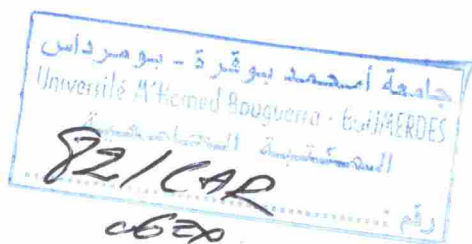 جامعة أمحمد بوقرة - بومرداس
Université M'Hamed Bouguerra - BOUMERDES
المكتبة الجامعية
82/CAR
رقم :